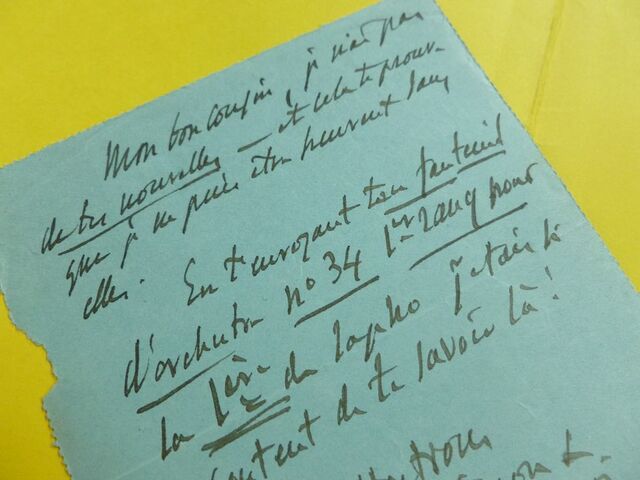 Mon bon cousin, je n'ai pas
de tes nouvelles — et cela te prouve
que je ne puis être peuvent sans
elles. En t'envoyant ton fauteuil
d'orchestre n° 34 1er rang pour
la 1ère de Sapho j'étais si
content de te savoir là!